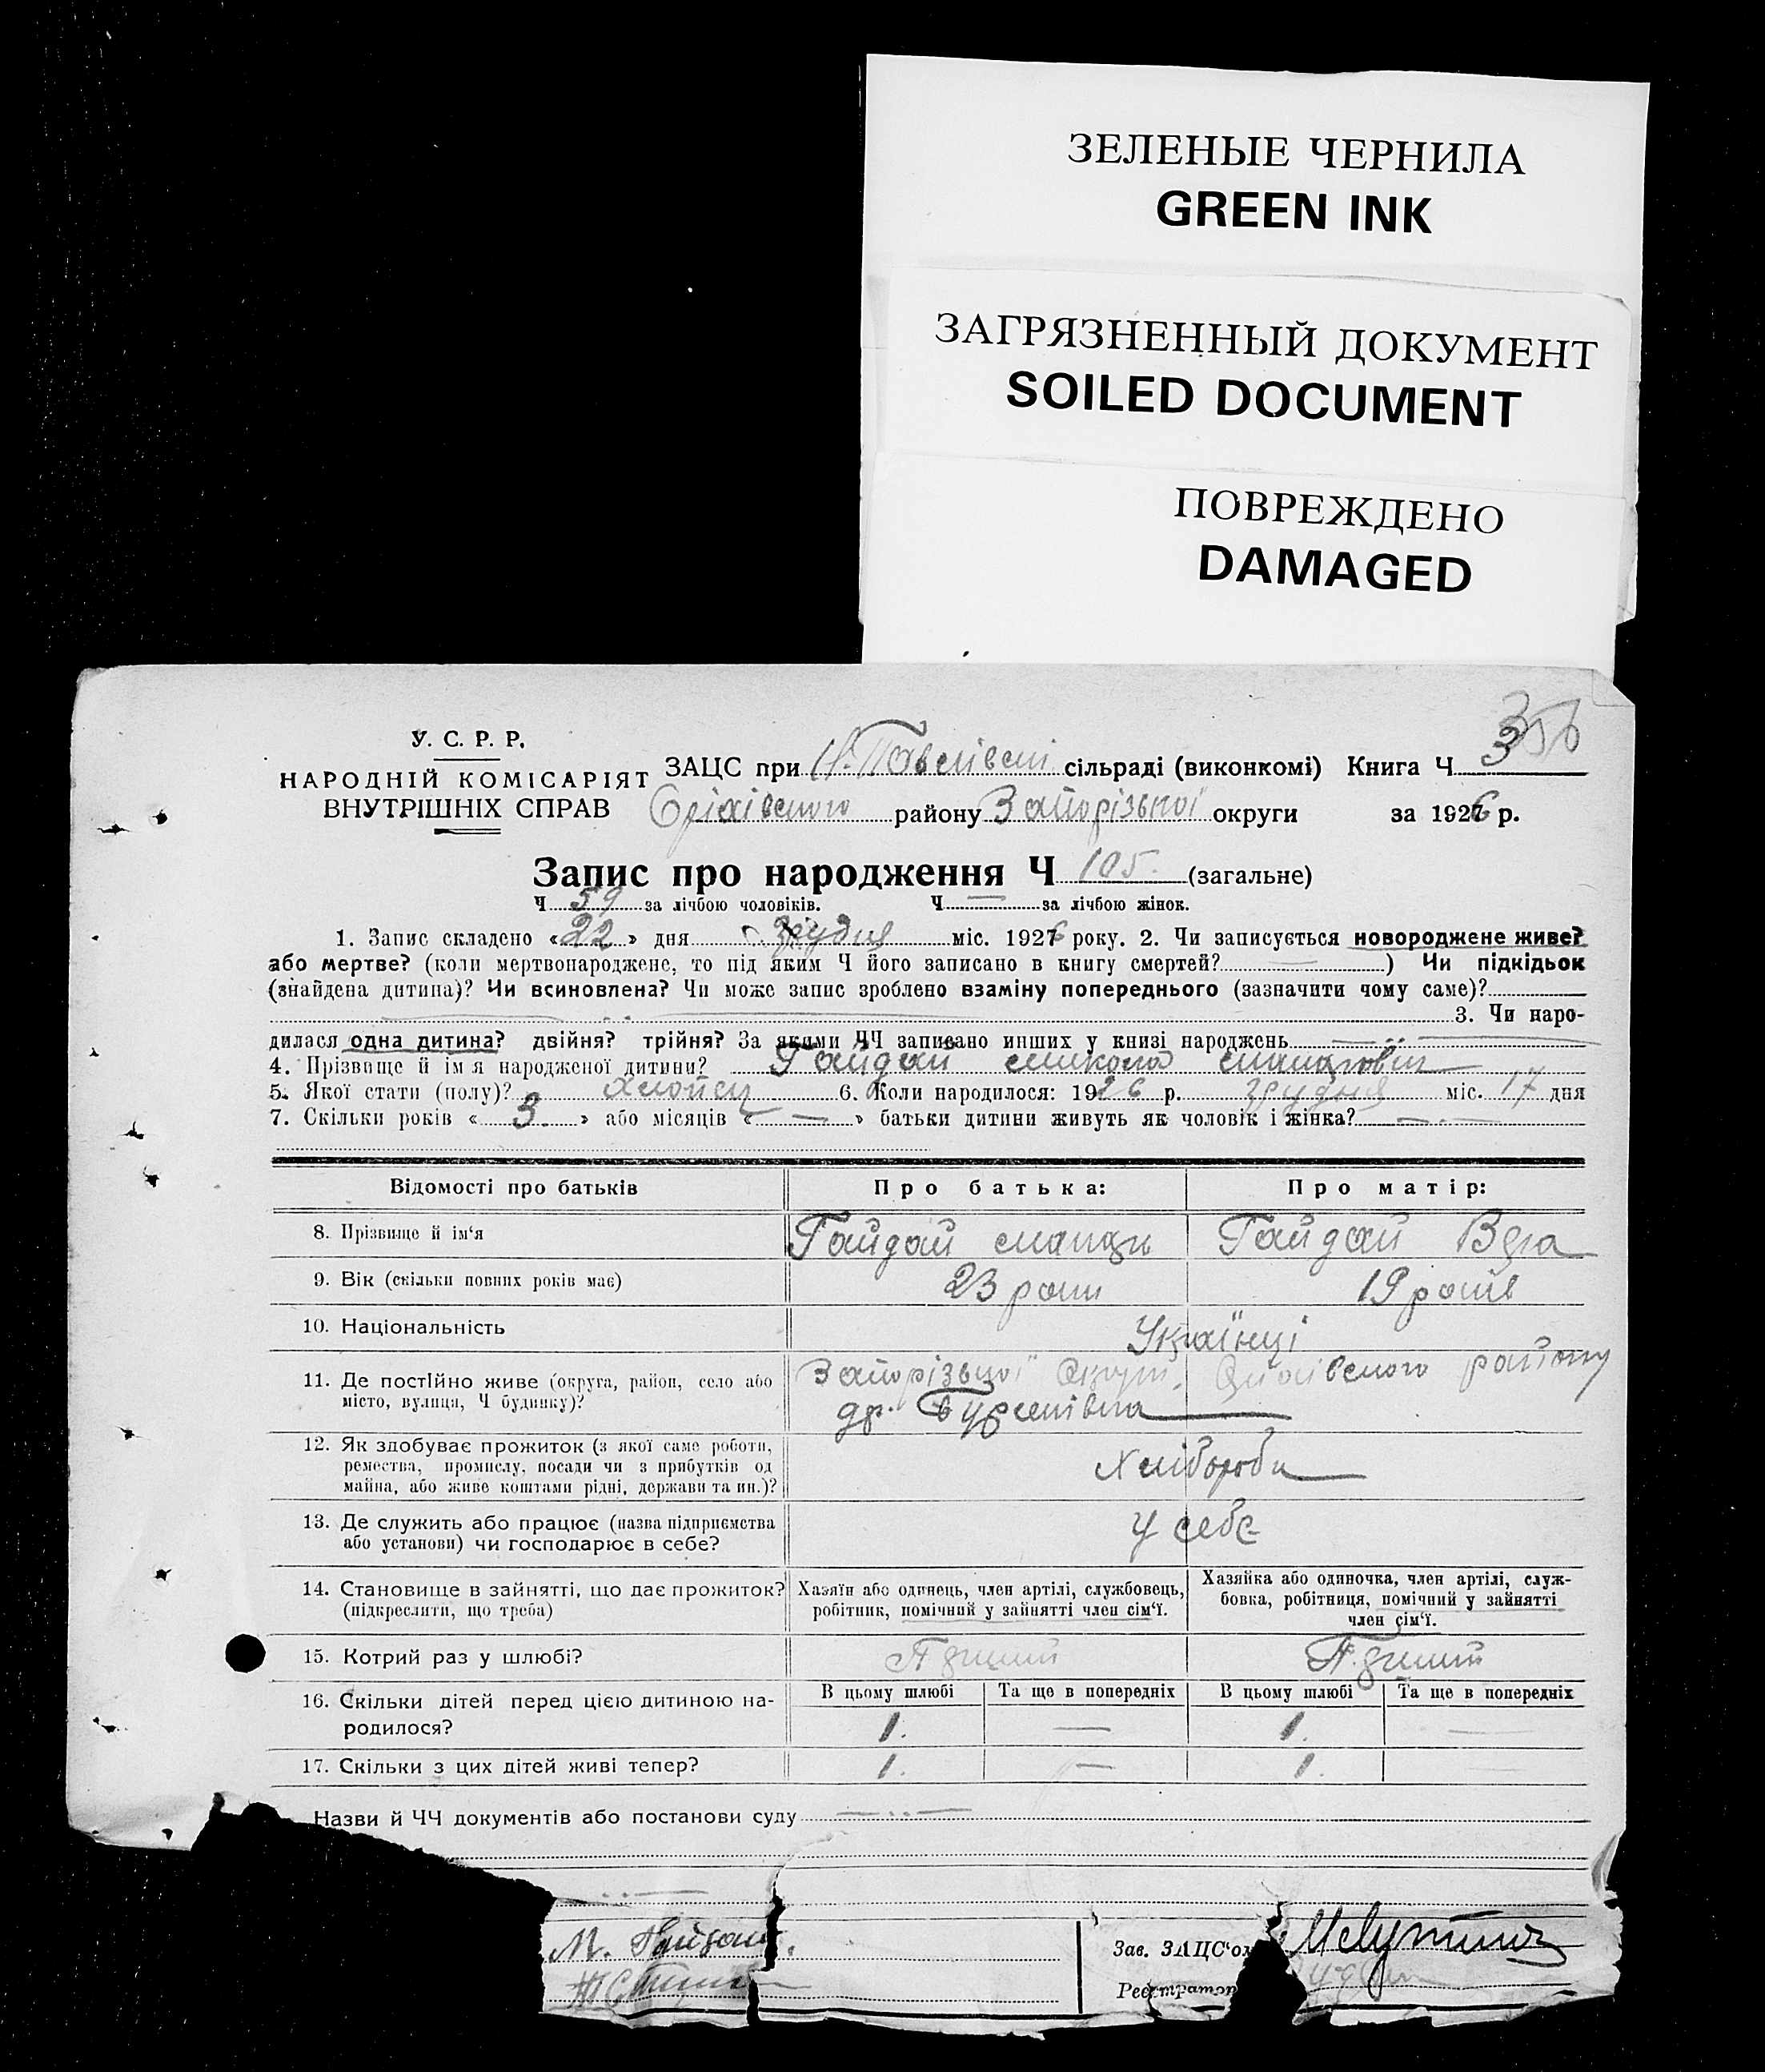 ЗЕЛЕНЫЕ ЧЕРНИЛА
GREEN INK
ЗАГРЯЗНЕННЫЙ ДОКУМЕНТ
SOILED DOCUMENT
ПОВРЕЖДЕНО
DAMAGED
356
У. С. Р. Р.
НАРОДНІЙ КОМІСАРІЯТ
ВНУТРІШНІХ СПРАВ
ЗАЦС при сільраді (виконкомі) Книга Ч 3
Оріхівського району Запорізької округи за 1926 р.
Запис про народження Ч 105. (загальне)
Ч 59 за лічбою чоловіків. Ч — за лічбою жінок.
1. Запис складено «22» дня грудня міс. 1926 року. 2. Чи записується новороджене живе?
або мертве? (коли мертвонароджене, то під яким Ч його записано в книгу смертей? —) Чи підкідьок
(знайдена дитина)? Чи всиновлена? Чи може запис зроблено взаміну попереднього (зазначити чому саме)?
3. Чи наро-
дилася одна дитина? двійня? трійня? За якими ЧЧ записано инших у книзі народжень
4. Прізвище й ім'я народженої дитини? Гайдай Микола
5. Якої стати (полу)? хлопец 6. Коли народилося: 1926 р. грудня міс. 17 дня
7. Скільки років «3» або місяців «—» батьки дитини живуть як чоловік і жінка?
Відомості про батьків
Про батька:
Про матір:
8. Прізвище й ім'я Гайдай Гайдай Вера
9. Вік (скільки повних років має) 23 роки 19 років
10. Національність Українці
11. Де постійно живе (округа, район, село або Запорізької Округи, Оріхівського району
місто, вулиця, Ч будинку)? др.
12. Як здобуває прожиток (з якої саме роботи, Хлібороби
ремества, промислу, посади чи з прибутків од
майна, або живе коштами рідні, держави та ин.)?
13. Де служить або працює (назва підприємства у себе
або установи) чи господарює в себе?
14. Становище в зайнятті, що дає прожиток?
(підкреслити, що треба)
Хазяїн або одинець, член артілі, службовець,
робітник, помічний у зайнятті член сім'ї.
Хазяйка або одиночка, член артілі, служ-
бовка, робітниця, помічний у зайнятті
член сім'ї.
15. Котрий раз у шлюбі?
16. Скільки дітей перед цією дитиною на-
родилося?
В цьому шлюбі Та ще в попередніх В цьому шлюбі Та ще в попередніх
1. — 1. —
17. Скільки з цих дітей живі тепер? 1. — 1. —
Назви й ЧЧ документів або постанови суду
М. Гайдай.
Зав. ЗАЦС'ом
Реєстратор